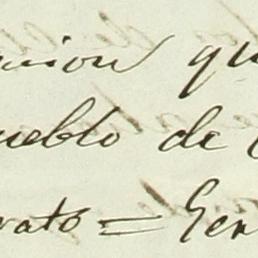 cion qu
ueblo de
rato = Gen